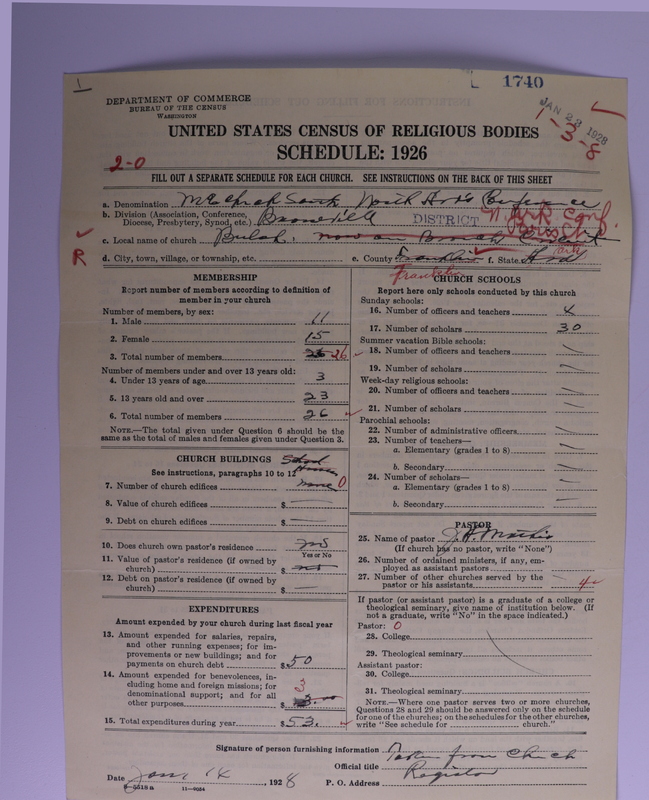 1
1740
DEPARTMENT OF COMMERCE
BUREAU OF THE CENSUS
WASHINGTON
JAN 23 1928
1-3-8
UNITED STATES CENSUS OF RELIGIOUS BODIES
SCHEDULE: 1926
2-0
FILL OUT A SEPARATE SCHEDULE FOR EACH CHURCH. SEE INSTRUCTIONS ON THE BACK OF THIS SHEET
a. Denomination M E Church South North Ark Conference
b. Division (Association, Conference, Diocese, Presbytery, Synod, etc.) Booneville DISTRICT N. Ark Conf.
c. Local name of church Bulah. now on Branch Circuit
R
d. City, town, village, or township, etc. e. County Franklin f. State Ark
Franklin
MEMBERSHIP
Report number of members according to definition of
member in your church
Number of members, by sex:
1. Male 11
2. Female 15
3. Total number of members 26 26
Number of members under and over 13 years old:
4. Under 13 years of age 3
5. 13 years old and over 23
6. Total number of members 26
NOTE.—The total given under Question 6 should be
same as the total of males and females given under Question 3.
CHURCH BUILDINGS School House
See instructions, paragraphs 10 to 12
7. Number of church edifices none 0
8. Value of church edifices $
9. Debt on church edifices $
10. Does church own pastor's residence no
Yes or No
11. Value of pastor's residence (if owned by
church) $
12. Debt on pastor's residence (if owned by
church) $
EXPENDITURES
Amount expended by your church during last fiscal year
13. Amount expended for salaries, repairs,
and other running expenses; for im-
provements or new buildings; and for
payments on church debt $50
14. Amount expended for benevolences, in-
cluding home and foreign missions; for
denominational support; and for all
other purposes $ 3
15. Total expenditures during year $53.
CHURCH SCHOOLS
Report here only schools conducted by this church
Sunday schools:
16. Number of officers and teachers 4
17. Number of scholars 30
Summer vacation Bible schools:
18. Number of officers and teachers
19. Number of scholars
Week-day religious schools:
20. Number of officers and teachers
21. Number of scholars
Parochial schools:
22. Number of administrative officers
23. Number of teachers—
a. Elementary (grades 1 to 8)
b. Secondary
24. Number of scholars—
a. Elementary (grades 1 to 8)
b. Secondary
PASTOR
25. Name of pastor J. H. Mathis
(If church has no pastor, write "None")
26. Number of ordained ministers, if any, em-
ployed as assistant pastors
27. Number of other churches served by the
pastor or his assistants 4
If pastor (or assistant pastor) is a graduate of a college or
theological seminary, give name of institution below. (If
not a graduate, write "No" in the space indicated.)
Pastor: 0
28. College
29. Theological seminary
Assistant pastor:
30. College
31. Theological seminary
NOTE.—Where one pastor serves two or more churches,
Questions 28 and 29 should be answered only on the schedule
for one of the churches; on the schedules for the other churches,
write "See schedule for church."
Signature of person furnishing information Taken from Church
Official title Register
Date Jan 14, 1928 P. O. Address
8-5518a 11-9034